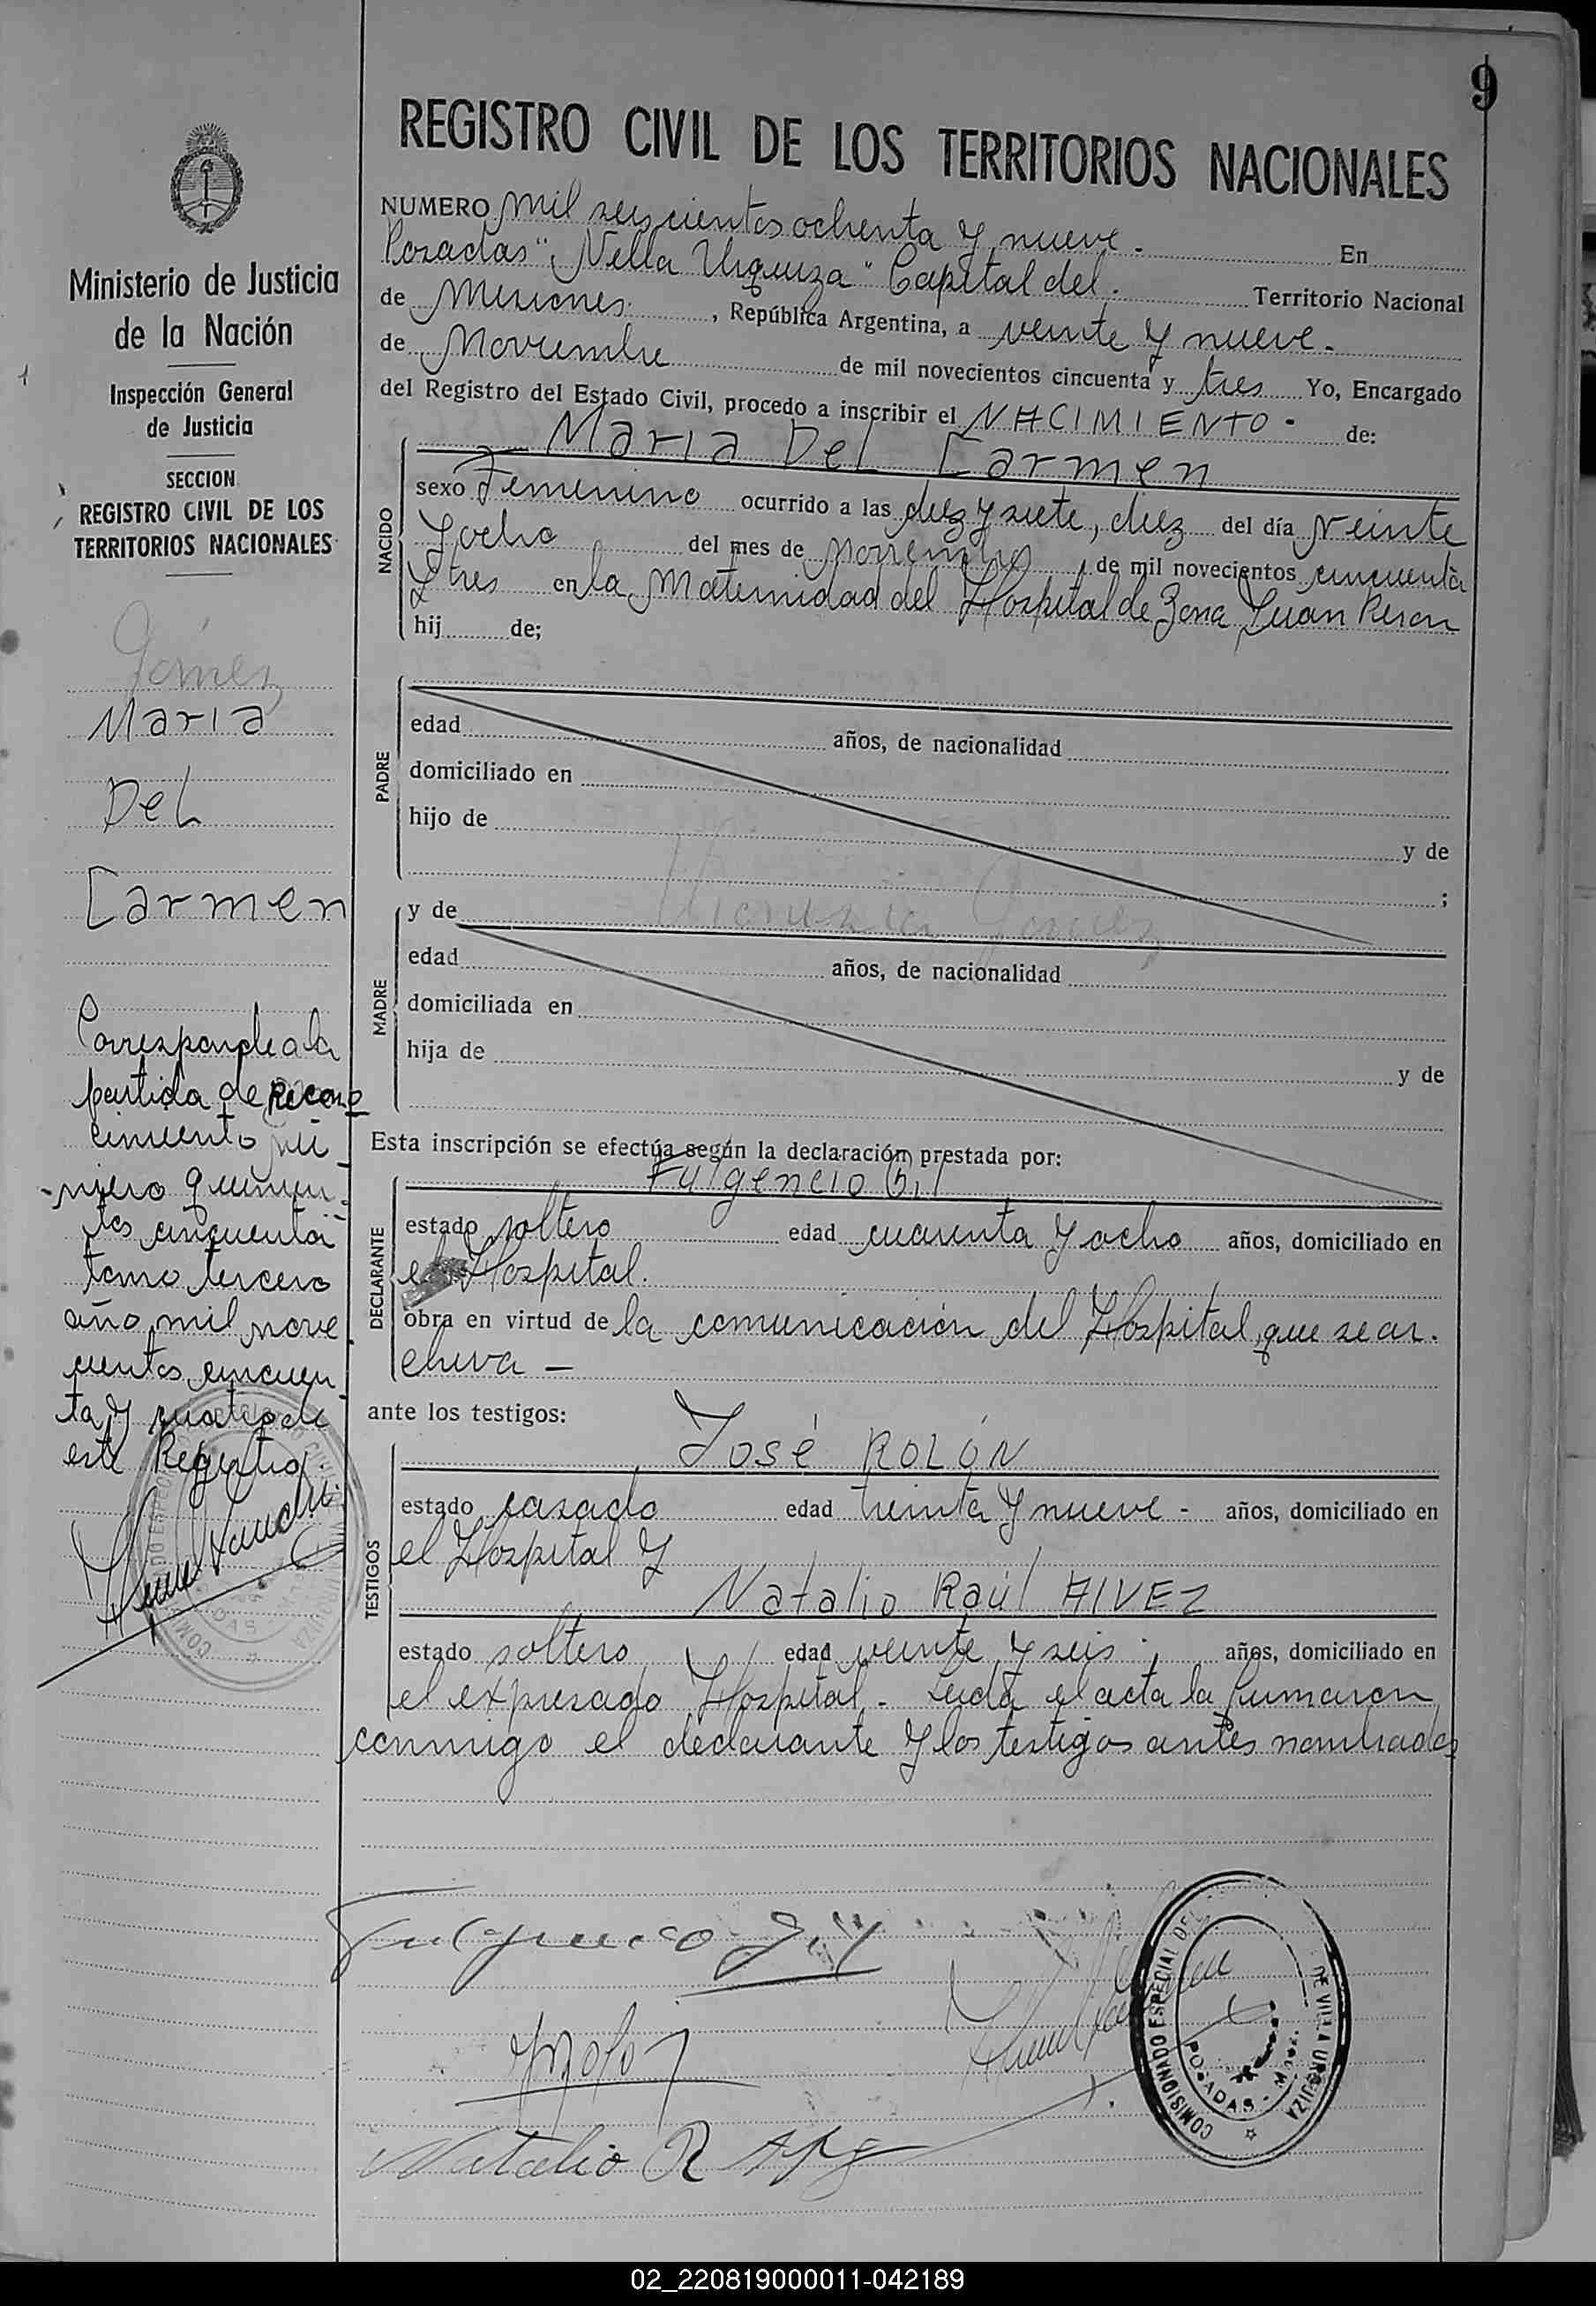 9
REGISTRO CIVIL DE LOS TERRITORIOS NACIONALES
Ministerio de Justicia
de la Nación
Inspección General
de Justicia
SECCION
REGISTRO CIVIL DE LOS
TERRITORIOS NACIONALES
Gómez
Maria
Del
Carmen
Corresponde a la
partida de recono
cimiento nú
mero quinien
tos cincuenta
tomo tercero
año mil nove
cientos cincuen
ta y cuatro de
este Registro.
NUMERO mil seiscientos ochenta y nueve. En
Posadas "Villa Urquiza" Capital del Territorio Nacional
de Misiones, República Argentina, a veinte y nueve
de Noviembre de mil novecientos cincuenta y tres Yo, Encargado
del Registro del Estado Civil, procedo a inscribir el NACIMIENTO de:
Maria Del Carmen
NACIDO
sexo Femenino ocurrido a las diez y siete, diez del día veinte
y ocho del mes de Noviembre de mil novecientos cincuenta
y tres en la Maternidad del Hospital de Zona Juan Peron
hij de;
PADRE
edad años, de nacionalidad
domiciliado en
hijo de y de
;
MADRE
y de Gomez
edad años, de nacionalidad
domiciliada en
hija de y de
Esta inscripción se efectúa según la declaración prestada por:
Fulgencio Gil
DECLARANTE
estado soltero edad cuarenta y ocho años, domiciliado en
el Hospital.
obra en virtud de la comunicación del Hospital, que se ar-
chiva —
ante los testigos:
José ROLÓN
TESTIGOS
estado casado edad treinta y nueve - años, domiciliado en
el Hospital y
Natalio Raúl AlVEZ
estado soltero edad veinte y seis años, domiciliado en
el expresado Hospital - Leida el acta la firmaron
conmigo el declarante y los testigos antes nombrados
Fulgencio Gil
Natalio R
COMISIONADO ESPECIAL DEL
DE VILLA URQUIZA
POSADAS
02_220819000011-042189